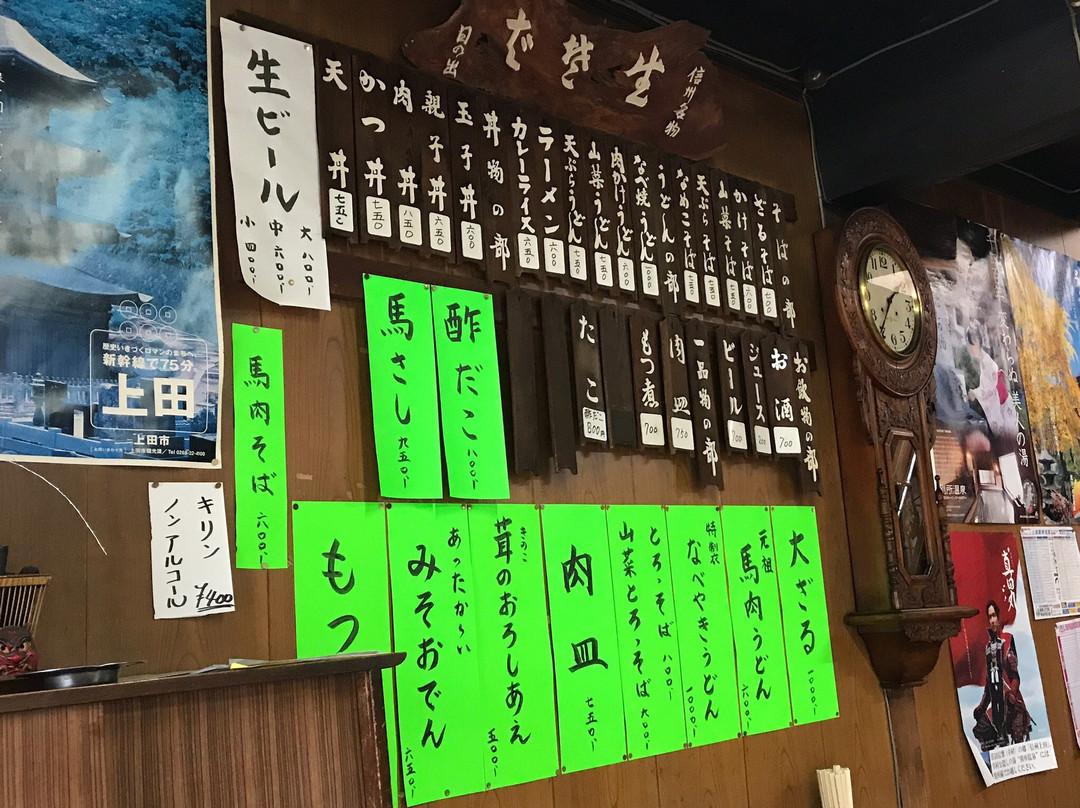 信州名物
生そば
日の出
そばの部
ざるそば 700
かけそば 600
山菜そば 750
天ぷらそば
なめこそば
うどんの部
なべ焼うどん
肉かけうどん 600
山菜うどん 七五〇
天ぷらうどん 七五〇
ラーメン 六〇〇
カレーライス 六五〇
丼物の部
玉子丼 六〇〇
親子丼 六五〇
肉丼 八五〇
かつ丼 七五〇
天丼 七五〇
お飲物の部
お酒 700
ジュース 200
ビール 700
一品物の部
肉皿 750
もつ煮 700
たこ
酢だこ 800円
生ビール
大 八〇〇.-
中 六〇〇.-
小 四〇〇.-
酢だこ 八〇〇.-
馬さし 九五〇.-
馬肉そば 六〇〇.-
キリン
ノンアルコール
¥400
大ざる 1000.-
元祖
馬肉うどん 六〇〇.-
特製
なべやきうどん 1000.-
とろっそば 八〇〇.-
山菜とろっそば 九〇〇.-
肉皿 七五〇.-
きのこ
茸のおろしあえ 五〇〇.-
あったか〜い
みそおでん 六五〇.-
もつ
歴史いきづくロマンのまちへ。
新幹線で75分。
上田
上田市
美人の湯
別所温泉